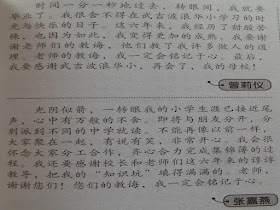 时间一分一秒地过去，转眼间，我就要
毕业了。我很舍不得在武吉波浪华小学习的时
光与快乐的日子。这六年来，我经历了甜酸苦
辣，也因为如此，我变得更加的成熟。我要谢
谢老师们的教诲，他们教了我许多做人的道
理。老师们的教诲，我一定会铭记于心。最
后，我要感谢武吉波浪华小，再会了，我的母校！
曾莉仪
光阴似箭，一转眼我的小学生涯已接近尾
声，心中有万般的不舍。即将与朋友分开，分
别派到不同的中学就读，不能再像以前一样，
大家聚在一起，有说有笑，非常开心。我会很
怀念大家分工合作，齐心合力完成集锦簿的过
程。我还要感谢校长和老师们这六年来的谆谆
教导，把我的“知识坑”填得满满的。老师，
谢谢您们！您们的教诲，我一定会铭记于心。
张嘉燕